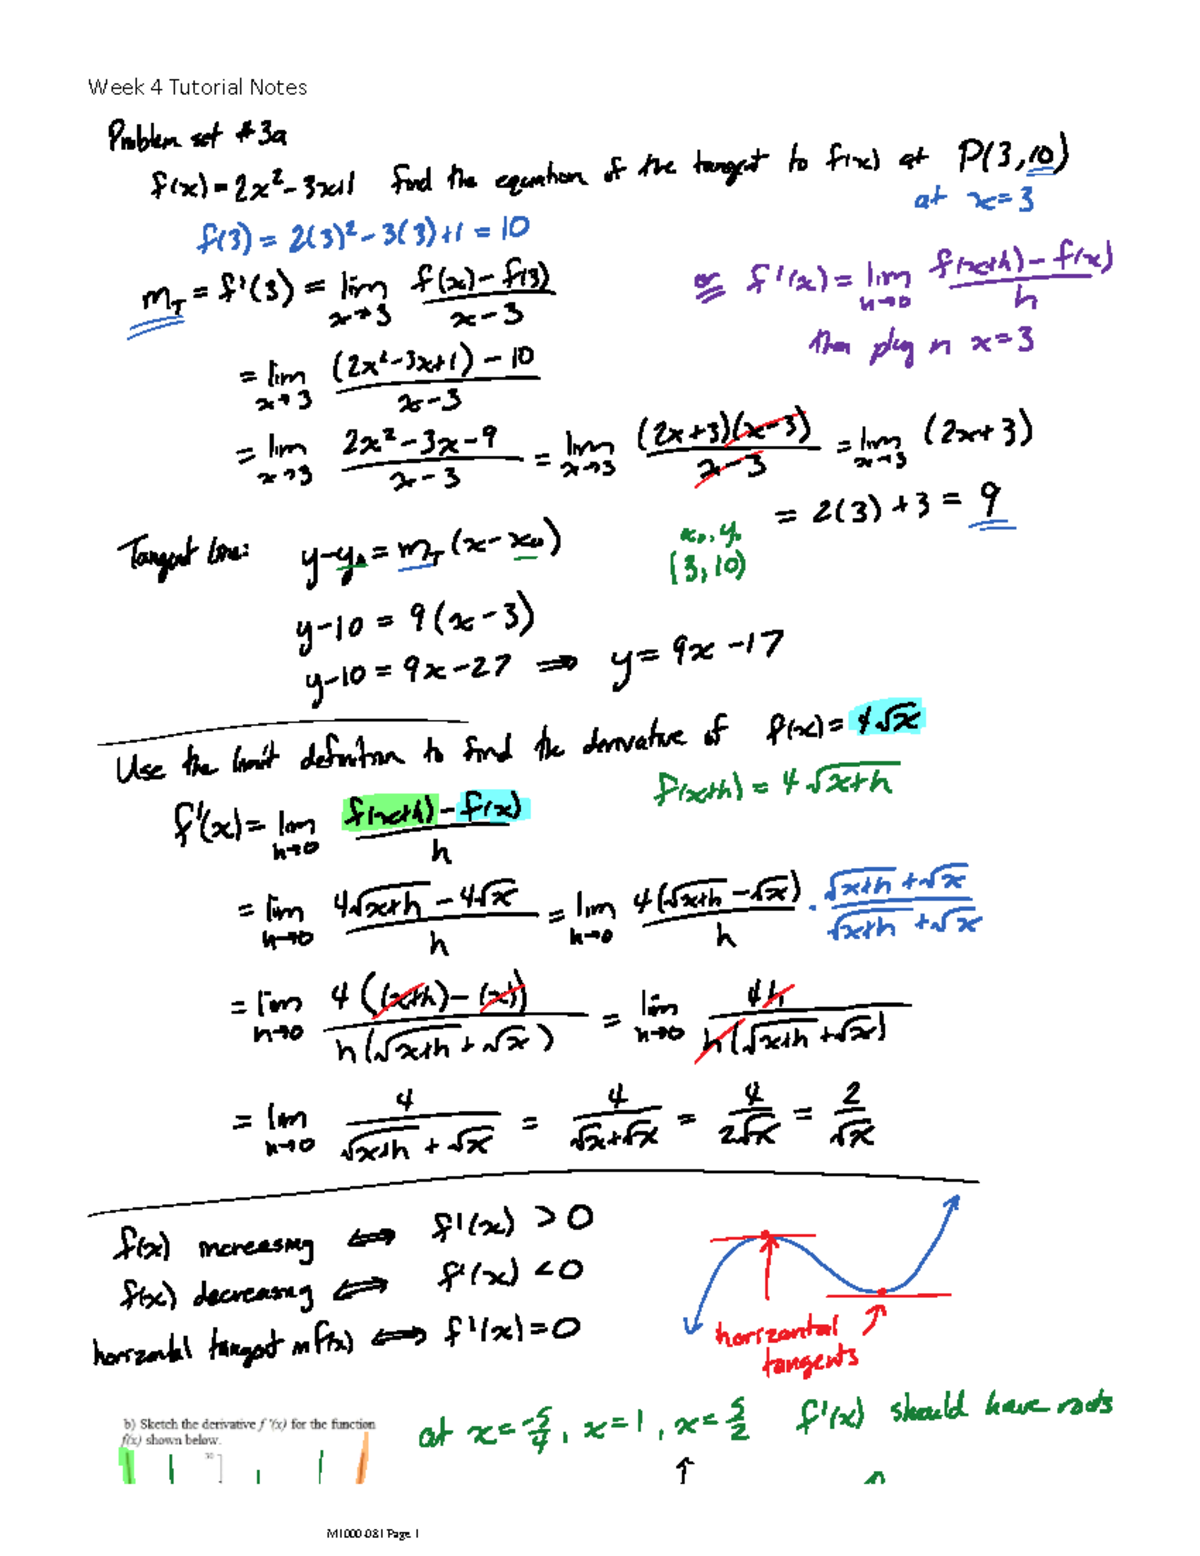 Week 4 Tutorial Notes
Problem set #3a
f(x) = 2x² - 3x+1 Find the equation of the tangent to f(x) at P(3,10)
at x=3
f(3) = 2(3)² - 3(3)+1 = 10
m_T = f'(3) = lim x→3 (f(x) - f(3))/(x-3)
or f'(x) = lim h→0 (f(x+h) - f(x))/h
then plug in x=3
= lim x→3 ((2x²-3x+1) - 10)/(x-3)
= lim x→3 (2x²-3x-9)/(x-3) = lim x→3 ((2x+3)(x-3))/(x-3) = lim x→3 (2x+3)
= 2(3)+3 = 9
Tangent line: y-y₀ = m_T (x-x₀)
x₀, y₀
(3, 10)
y-10 = 9(x-3)
y-10 = 9x-27 ⇒ y = 9x-17
Use the limit definition to find the derivative of f(x) = 4√x
f(x+h) = 4√(x+h)
f'(x) = lim h→0 (f(x+h) - f(x))/h
= lim h→0 (4√(x+h) - 4√x)/h = lim h→0 (4(√(x+h) - √x))/h · (√(x+h) + √x)/(√(x+h) + √x)
= lim h→0 (4((x+h)-(x)))/(h(√(x+h) + √x)) = lim h→0 (4h)/(h(√(x+h) + √x))
= lim h→0 4/(√(x+h) + √x) = 4/(√x+√x) = 4/(2√x) = 2/√x
f(x) increasing ⇔ f'(x) > 0
f(x) decreasing ⇔ f'(x) < 0
horizontal tangent in f(x) ⇔ f'(x) = 0
horizontal
tangents
b) Sketch the derivative f '(x) for the function
f(x) shown below.
30
at x = -5/4, x = 1, x = 5/2 f'(x) should have roots
M1000-081 Page 1